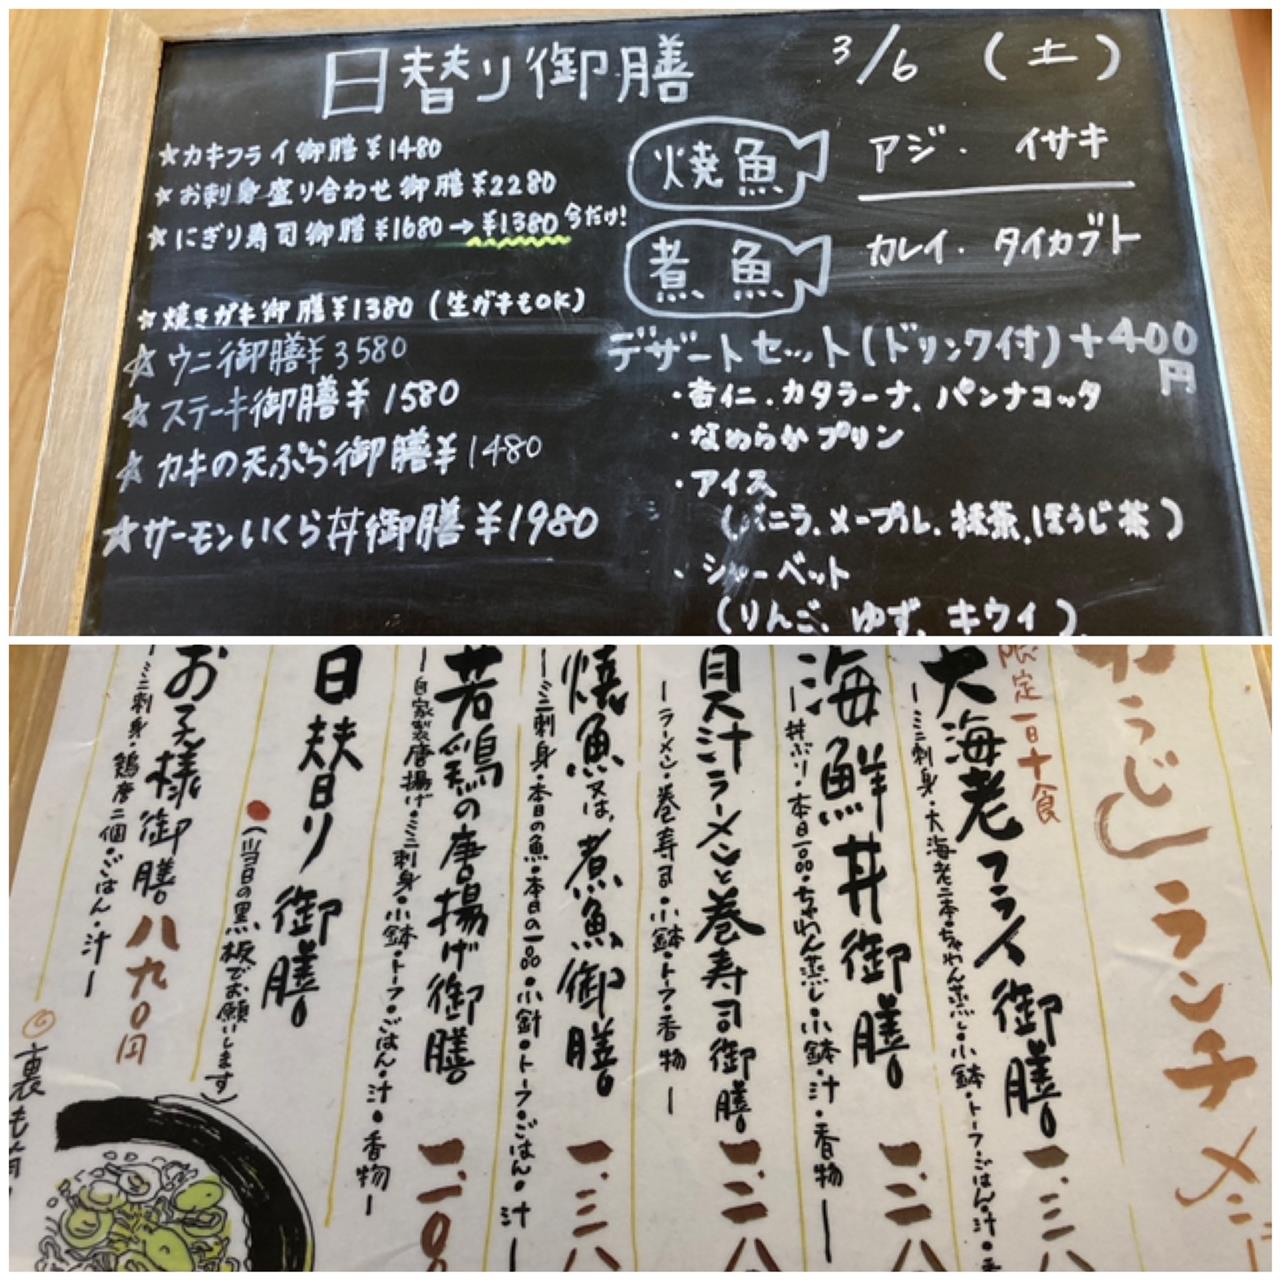 日替り御膳
3/6 (土)
☆カキフライ御膳¥1480
☆お刺身盛り合わせ御膳¥2280
☆にぎり寿司御膳¥1680→¥1380 今だけ!
☆焼きガキ御膳¥1380(生ガキもOK)
☆ウニ御膳¥3580
☆ステーキ御膳¥1580
☆カキの天ぷら御膳¥1480
☆サーモンいくら丼御膳¥1980
焼魚 アジ・イサキ
煮魚 カレイ・タイカブト
デザートセット(ドリンク付)+400円
・杏仁、カタラーナ、パンナコッタ
・なめらかプリン
・アイス
(バニラ、メープル、抹茶、ほうじ茶)
・シャーベット
(りんご、ゆず、キウイ)
うじ
ランチメニ
限定一日十食
大海老フライ御膳 一、三八
ーミニ刺身・大海老二本・ちゃわん蒸し・小鉢・トーフ・ごはん・汁・
海鮮丼御膳 一、二八
ー丼ぶり・本日一品・ちゃわん蒸し・小鉢・汁・香物ー
貝汁ラーメンと巻寿司御膳 一、二八
ーラーメン・巻寿司・小鉢・トーフ・香物ー
焼魚又は、煮魚御膳 一、三八
ーミニ刺身・本日の魚・本日の一品・小針・トーフ・ごはん・汁ー
若鶏の唐揚げ御膳 一、一〇
ー自家製唐揚げ・ミニ刺身・小鉢・トーフ・ごはん・汁・香物ー
日替り御膳
●(当日の黒板でお願いします)
お子様御膳 八九〇円
ーミニ刺身・鶏唐二個・ごはん・汁ー
◎裏も